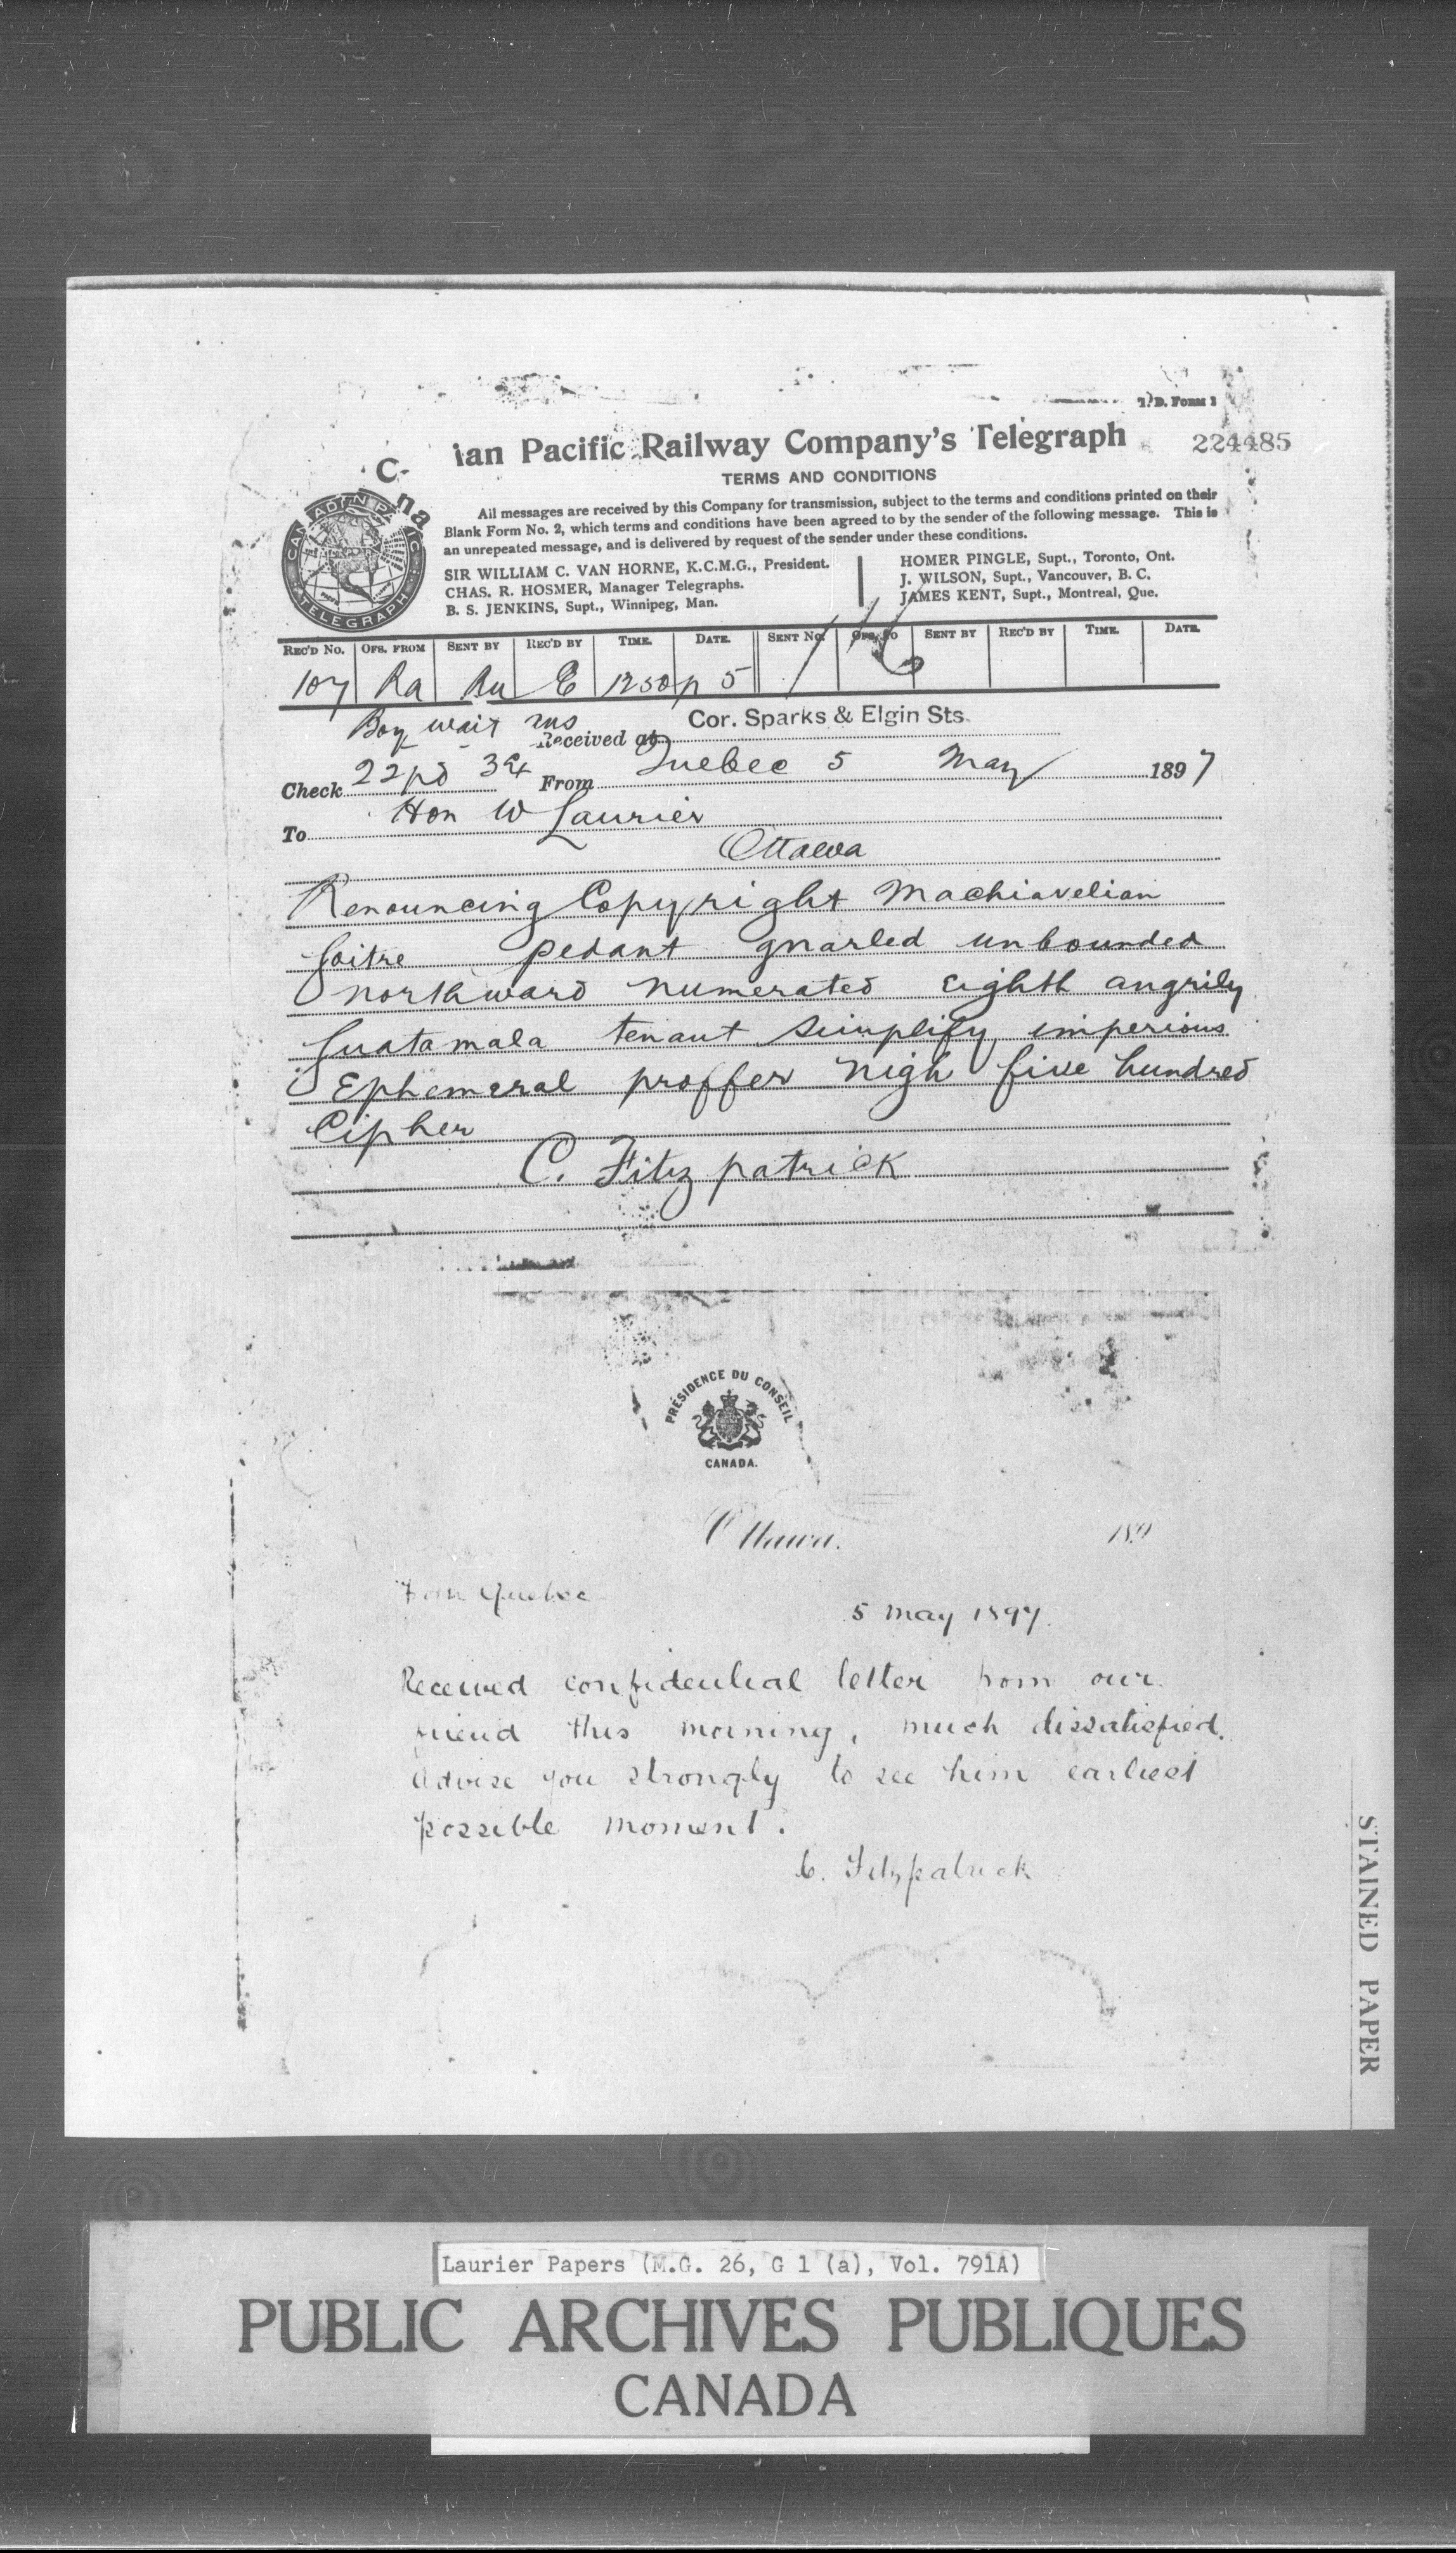 T.D. FORM 1
ian Pacific Railway Company's Telegraph
224485
C-
na
TERMS AND CONDITIONS
All messages are received by this Company for transmission, subject to the terms and conditions printed on their
Blank Form No. 2, which terms and conditions have been agreed to by the sender of the following message. This is
an unrepeated message, and is delivered by request of the sender under these conditions.
SIR WILLIAM C. VAN HORNE, K.C.M.G., President.
CHAS. R. HOSMER, Manager Telegraphs.
B. S. JENKINS, Supt., Winnipeg, Man.
HOMER PINGLE, Supt., Toronto, Ont.
J. WILSON, Supt., Vancouver, B. C.
JAMES KENT, Supt., Montreal, Que.
CANADIAN PACIFIC TELEGRAPH
REC'D No. OFS. FROM SENT BY REC'D BY TIME. DATE. SENT No. OFS. TO SENT BY REC'D BY TIME. DATE.
107 Ra Ru E 1250p 5
Boy wait ans
Cor. Sparks & Elgin Sts.
Received at
Check 22pd 3ex From Quebec 5 May 1897
To Hon W Laurier
Ottawa
Renouncing Copyright Machiavelian
Goitre pedant gnarled unbounded
northward numerated eighth angrily
Guatamala tenant simplify imperious
Ephemeral proffer nigh five hundred
Cipher
C. Fitzpatrick
PRÉSIDENCE DU CONSEIL
CANADA.
Ottawa. 189
From Quebec
5 May 1897.
Received confidential letter from our
friend this morning, much dissatisfied.
Advise you strongly to see him earliest
possible moment.
C. Fitzpatrick
STAINED PAPER
Laurier Papers (M.G. 26, G 1 (a), Vol. 791A)
PUBLIC ARCHIVES PUBLIQUES
CANADA